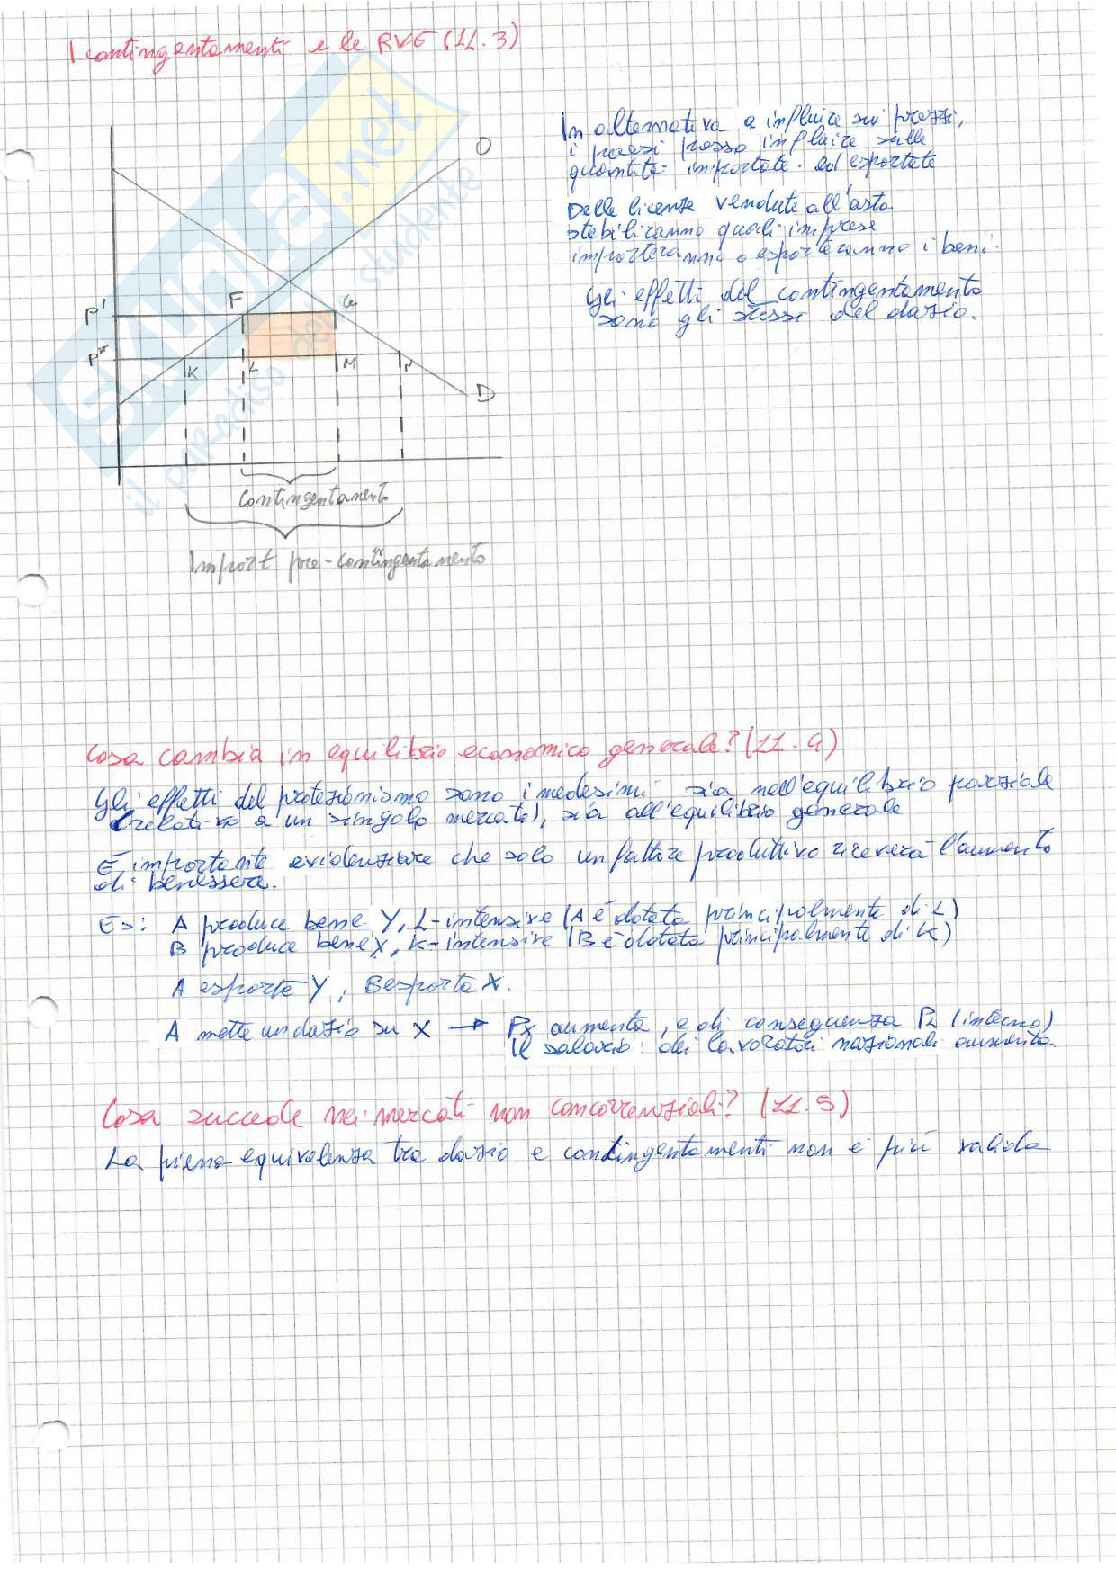 I contingentamenti e le RVE (11.3)
In alternativa a influire sui prezzi,
i paesi posso influire sulle
quantità importate ed esportate
Delle licenze vendute all'asta
stabiliranno quali imprese
importeranno o esporteranno i beni.
Gli effetti del contingentamento
sono gli stessi del dazio.
O
P'
F
G
P*
K
L
M
N
D
Contingentamento
Import pre-contingentamento
SKUOLA.net
il paradiso dello studente
Cosa cambia in equilibrio economico generale? (11.4)
Gli effetti del protezionismo sono i medesimi sia nell'equilibrio parziale
(relativo a un singolo mercato), sia all'equilibrio generale
È importante evidenziare che solo un fattore produttivo riceverà l'aumento
di benessere.
Es: A produce bene Y, L-intensive (A è dotata principalmente di L)
B produce bene X, K-intensive (B è dotata principalmente di K)
A esporta Y, B esporta X.
A mette un dazio su X → Px aumenta, e di conseguenza (interno)
Il salario dei lavoratori nazionali aumenta.
Cosa succede nei mercati non concorrenziali? (11.5)
La piena equivalenza tra dazio e contingentamenti non è più valida